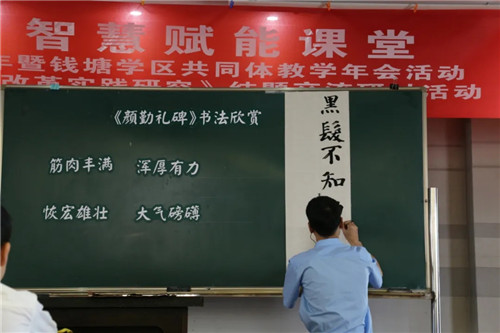 智慧赋能课堂
年暨钱塘学区共同体教学年会活动
改革实践研究》结题
活动
《颜勤礼碑》书法欣赏
筋肉丰满 浑厚有力
恢宏雄壮 大气磅礴
黑髮不知